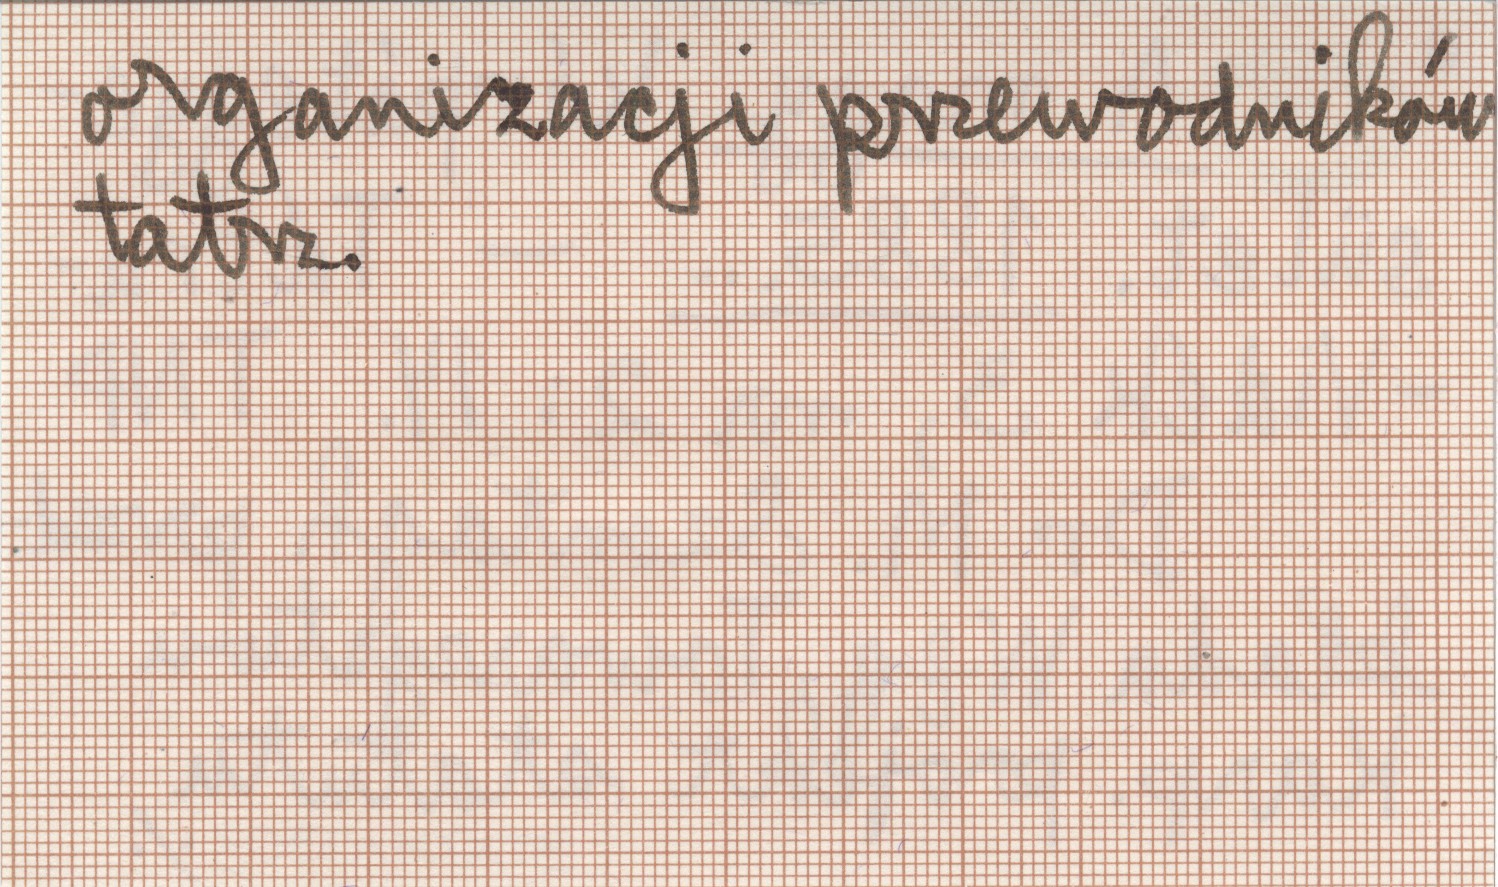 organizacji przewodników
tatrz.